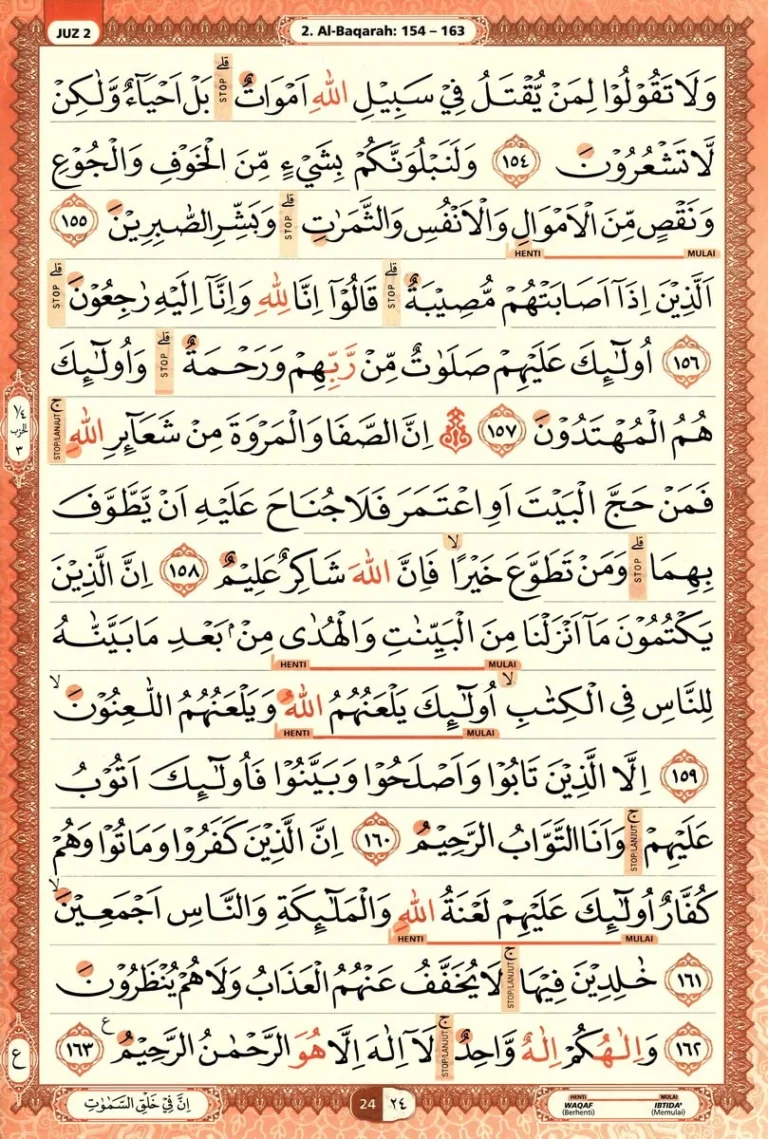 JUZ 2
2. Al-Baqarah: 154 – 163
وَلَا تَقُوْلُوْا لِمَنْ يُّقْتَلُ فِيْ سَبِيْلِ اللّٰهِ اَمْوَاتٌۗ بَلْ اَحْيَاۤءٌ وَّلٰكِنْ
لَّا تَشْعُرُوْنَ ١٥٤ وَلَنَبْلُوَنَّكُمْ بِشَيْءٍ مِّنَ الْخَوْفِ وَالْجُوْعِ
وَنَقْصٍ مِّنَ الْاَمْوَالِ وَالْاَنْفُسِ وَالثَّمَرٰتِۗ وَبَشِّرِ الصّٰبِرِيْنَ ١٥٥
HENTI MULAI
اَلَّذِيْنَ اِذَآ اَصَابَتْهُمْ مُّصِيْبَةٌۗ قَالُوْٓا اِنَّا لِلّٰهِ وَاِنَّآ اِلَيْهِ رٰجِعُوْنَۗ
١٥٦ اُولٰۤىِٕكَ عَلَيْهِمْ صَلَوٰتٌ مِّنْ رَّبِّهِمْ وَرَحْمَةٌۗ وَاُولٰۤىِٕكَ
هُمُ الْمُهْتَدُوْنَ ١٥٧ ۞ اِنَّ الصَّفَا وَالْمَرْوَةَ مِنْ شَعَاۤىِٕرِ اللّٰهِۚ
فَمَنْ حَجَّ الْبَيْتَ اَوِ اعْتَمَرَ فَلَا جُنَاحَ عَلَيْهِ اَنْ يَّطَّوَّفَ
بِهِمَاۗ وَمَنْ تَطَوَّعَ خَيْرًاۙ فَاِنَّ اللّٰهَ شَاكِرٌ عَلِيْمٌ ١٥٨ اِنَّ الَّذِيْنَ
يَكْتُمُوْنَ مَآ اَنْزَلْنَا مِنَ الْبَيِّنٰتِ وَالْهُدٰى مِنْۢ بَعْدِ مَا بَيَّنّٰهُ
HENTI MULAI
لِلنَّاسِ فِى الْكِتٰبِۙ اُولٰۤىِٕكَ يَلْعَنُهُمُ اللّٰهُ وَيَلْعَنُهُمُ اللّٰعِنُوْنَۙ
HENTI MULAI
١٥٩ اِلَّا الَّذِيْنَ تَابُوْا وَاَصْلَحُوْا وَبَيَّنُوْا فَاُولٰۤىِٕكَ اَتُوْبُ
عَلَيْهِمْۚ وَاَنَا التَّوَّابُ الرَّحِيْمُ ١٦٠ اِنَّ الَّذِيْنَ كَفَرُوْا وَمَاتُوْا وَهُمْ
كُفَّارٌ اُولٰۤىِٕكَ عَلَيْهِمْ لَعْنَةُ اللّٰهِ وَالْمَلٰۤىِٕكَةِ وَالنَّاسِ اَجْمَعِيْنَۙ
HENTI MULAI
١٦١ خٰلِدِيْنَ فِيْهَاۚ لَا يُخَفَّفُ عَنْهُمُ الْعَذَابُ وَلَا هُمْ يُنْظَرُوْنَ
١٦٢ وَاِلٰهُكُمْ اِلٰهٌ وَّاحِدٌۚ لَآ اِلٰهَ اِلَّا هُوَ الرَّحْمٰنُ الرَّحِيْمُ ࣖ ١٦٣
STOP
STOP
STOP
STOP
STOP
STOP/LANJUT
STOP
STOP/LANJUT
STOP/LANJUT
STOP/LANJUT
١/٤
الحزب
٣
ع
اِنَّ فِيْ خَلْقِ السَّمٰوٰتِ
24 ٢٤
HENTI MULAI
WAQAF IBTIDA'
(Berhenti) (Memulai)